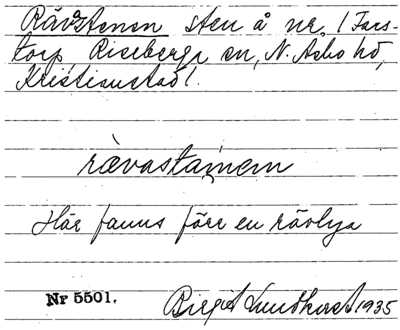 Rävastenen sten å nr 1 Fars-
torp, Riseberga sn, N. Åsbo hd,
Kristianstad l.
rævastainem
Här fanns förr en rävlya
Nr 5501. Birgit Lundkvist 1935